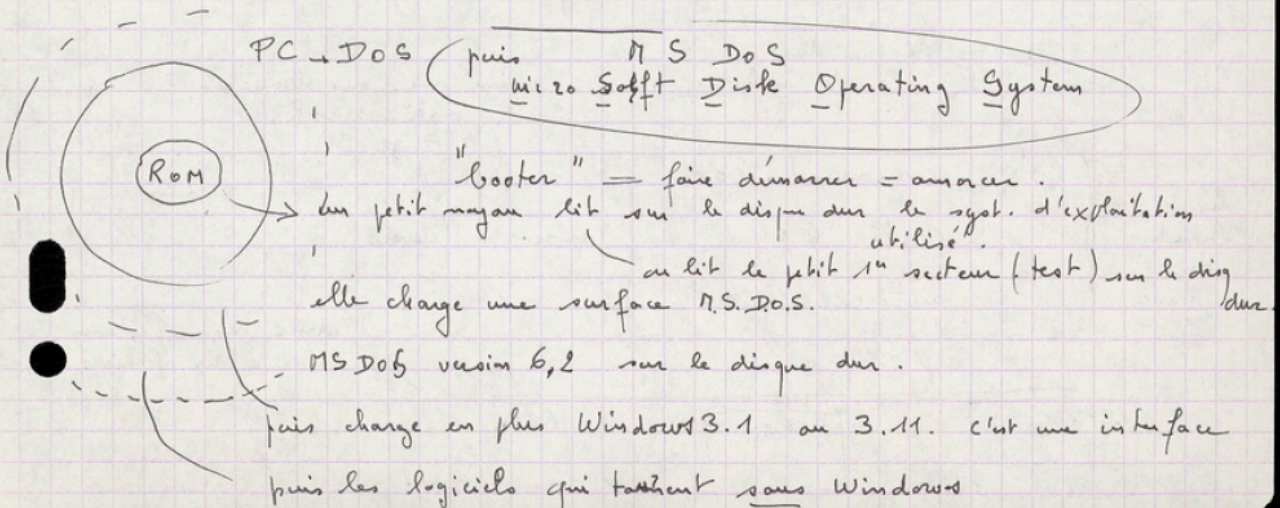 PC → DOS puis MS DOS
Micro Sofft Disk Operating System
ROM
"booter" = faire démarrer = amorcer.
un petit noyau lit sur le disque dur le syst. d'exploitation
utilisé.
on lit le petit 1er secteur (test) sur le disq
dur.
elle charge une surface M.S.D.O.S.
MS DOS version 6,2 sur le disque dur.
puis charge en plus Windows 3.1 ou 3.11. c'est une interface
puis les logiciels qui sous Windows